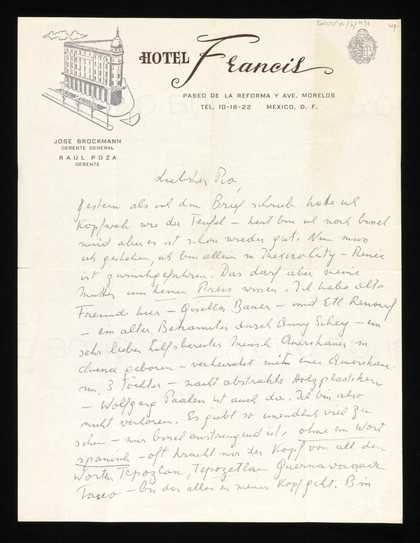 HOTEL Francis
PASEO DE LA REFORMA Y AVE. MORELOS
TEL. 10-16-22 MEXICO, D. F.
JOSE BROCKMANN
GERENTE GENERAL
RAUL POZA
GERENTE
gestern als ich den Brief schrieb hatte ich
Kopfweh wie der Teufel – heut bin ich noch
müd aber es ist schon wieder gut. Nun muss
ich gestehen, ich bin allein in Mexico City – Renée
ist zurückgefahren. Das darf aber meine
Mutter um keinen Preis wissen. Ich habe alte
Freunde hier – Bauer – und
– ein alter Bekannter durch – ein
sehr lieber hilfsbereiter Mensch Amerikaner in
geboren – verheiratet mit einer Amerikan
3 Töchter – macht abstrakte Holzplastiken
– Wolfgang Paalen ist auch da. Ich bin also
nicht verloren. Es giebt so unendlich viel zu
sehen – nur anstrengend ist, ohne ein Wort
spanisch – oft kracht mir der Kopf von all den
Worten Tepozlan, Tepozetlan
Taxco – bis das alles in meinen Kopf geht. Bin